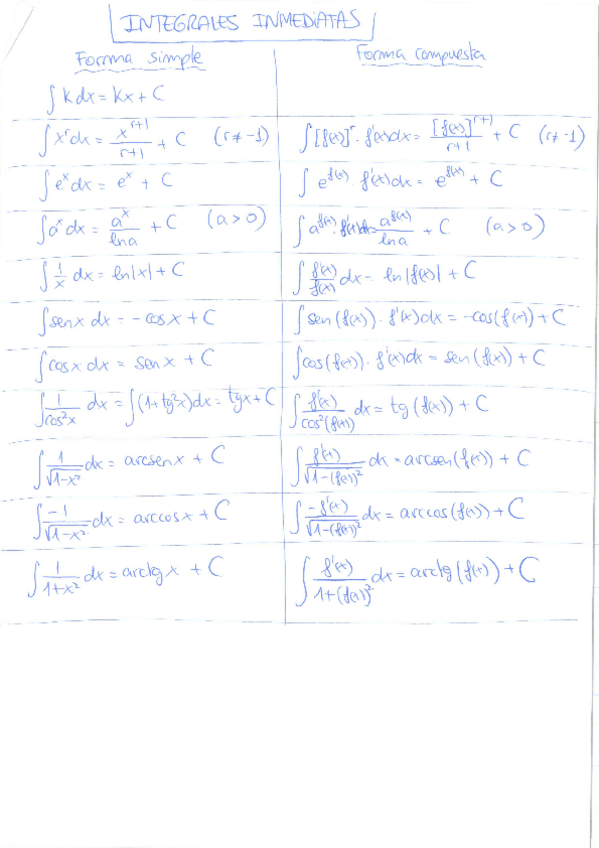 INTEGRALES INMEDIATAS
Forma simple Forma compuesta
∫ K dx = Kx + C
∫ x^r dx = x^(r+1)/(r+1) + C (r ≠ -1) ∫ [f(x)]^r · f'(x) dx = [f(x)]^(r+1)/(r+1) + C (r ≠ -1)
∫ e^x dx = e^x + C ∫ e^f(x) · f'(x) dx = e^f(x) + C
∫ a^x dx = a^x/ln a + C (a > 0) ∫ a^f(x) · f'(x) dx = a^f(x)/ln a + C (a > 0)
∫ 1/x dx = ln|x| + C ∫ f'(x)/f(x) dx = ln|f(x)| + C
∫ sen x dx = - cos x + C ∫ sen (f(x)) · f'(x) dx = -cos(f(x)) + C
∫ cos x dx = sen x + C ∫ cos (f(x)) · f'(x) dx = sen (f(x)) + C
∫ 1/cos²x dx = ∫ (1 + tg²x) dx = tg x + C ∫ f'(x)/cos²(f(x)) dx = tg (f(x)) + C
∫ 1/√(1-x²) dx = arcsen x + C ∫ f'(x)/√(1-(f(x))²) dx = arcsen (f(x)) + C
∫ -1/√(1-x²) dx = arccos x + C ∫ -f'(x)/√(1-(f(x))²) dx = arccos (f(x)) + C
∫ 1/(1+x²) dx = arctg x + C ∫ f'(x)/(1+(f(x))²) dx = arctg (f(x)) + C